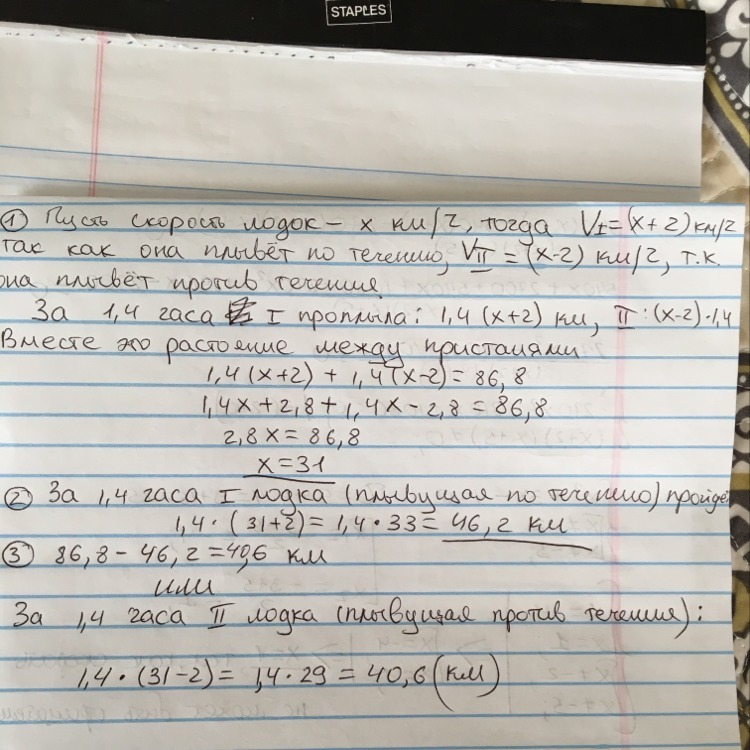 STAPLES
① Пусть скорость лодок – x км/ч, тогда V_I=(x+2)км/ч
так как она плывёт по течению, V_II = (x-2) км/ч, т.к.
она плывёт против течения.
За 1,4 часа I проплыла: 1,4 (x+2) км, II:(x-2)·1,4
Вместе это растояние между пристанями
1,4(x+2) + 1,4(x-2) = 86,8
1,4x+2,8+1,4x-2,8 = 86,8
2,8x = 86,8
x=31
② За 1,4 часа I лодка (плывущая по течению) пройдёт
1,4·(31+2)= 1,4·33= 46,2 км
③ 86,8 - 46,2 = 40,6 км
или
За 1,4 часа II лодка (плывущая против течения):
1,4·(31-2)= 1,4·29 = 40,6 (км)